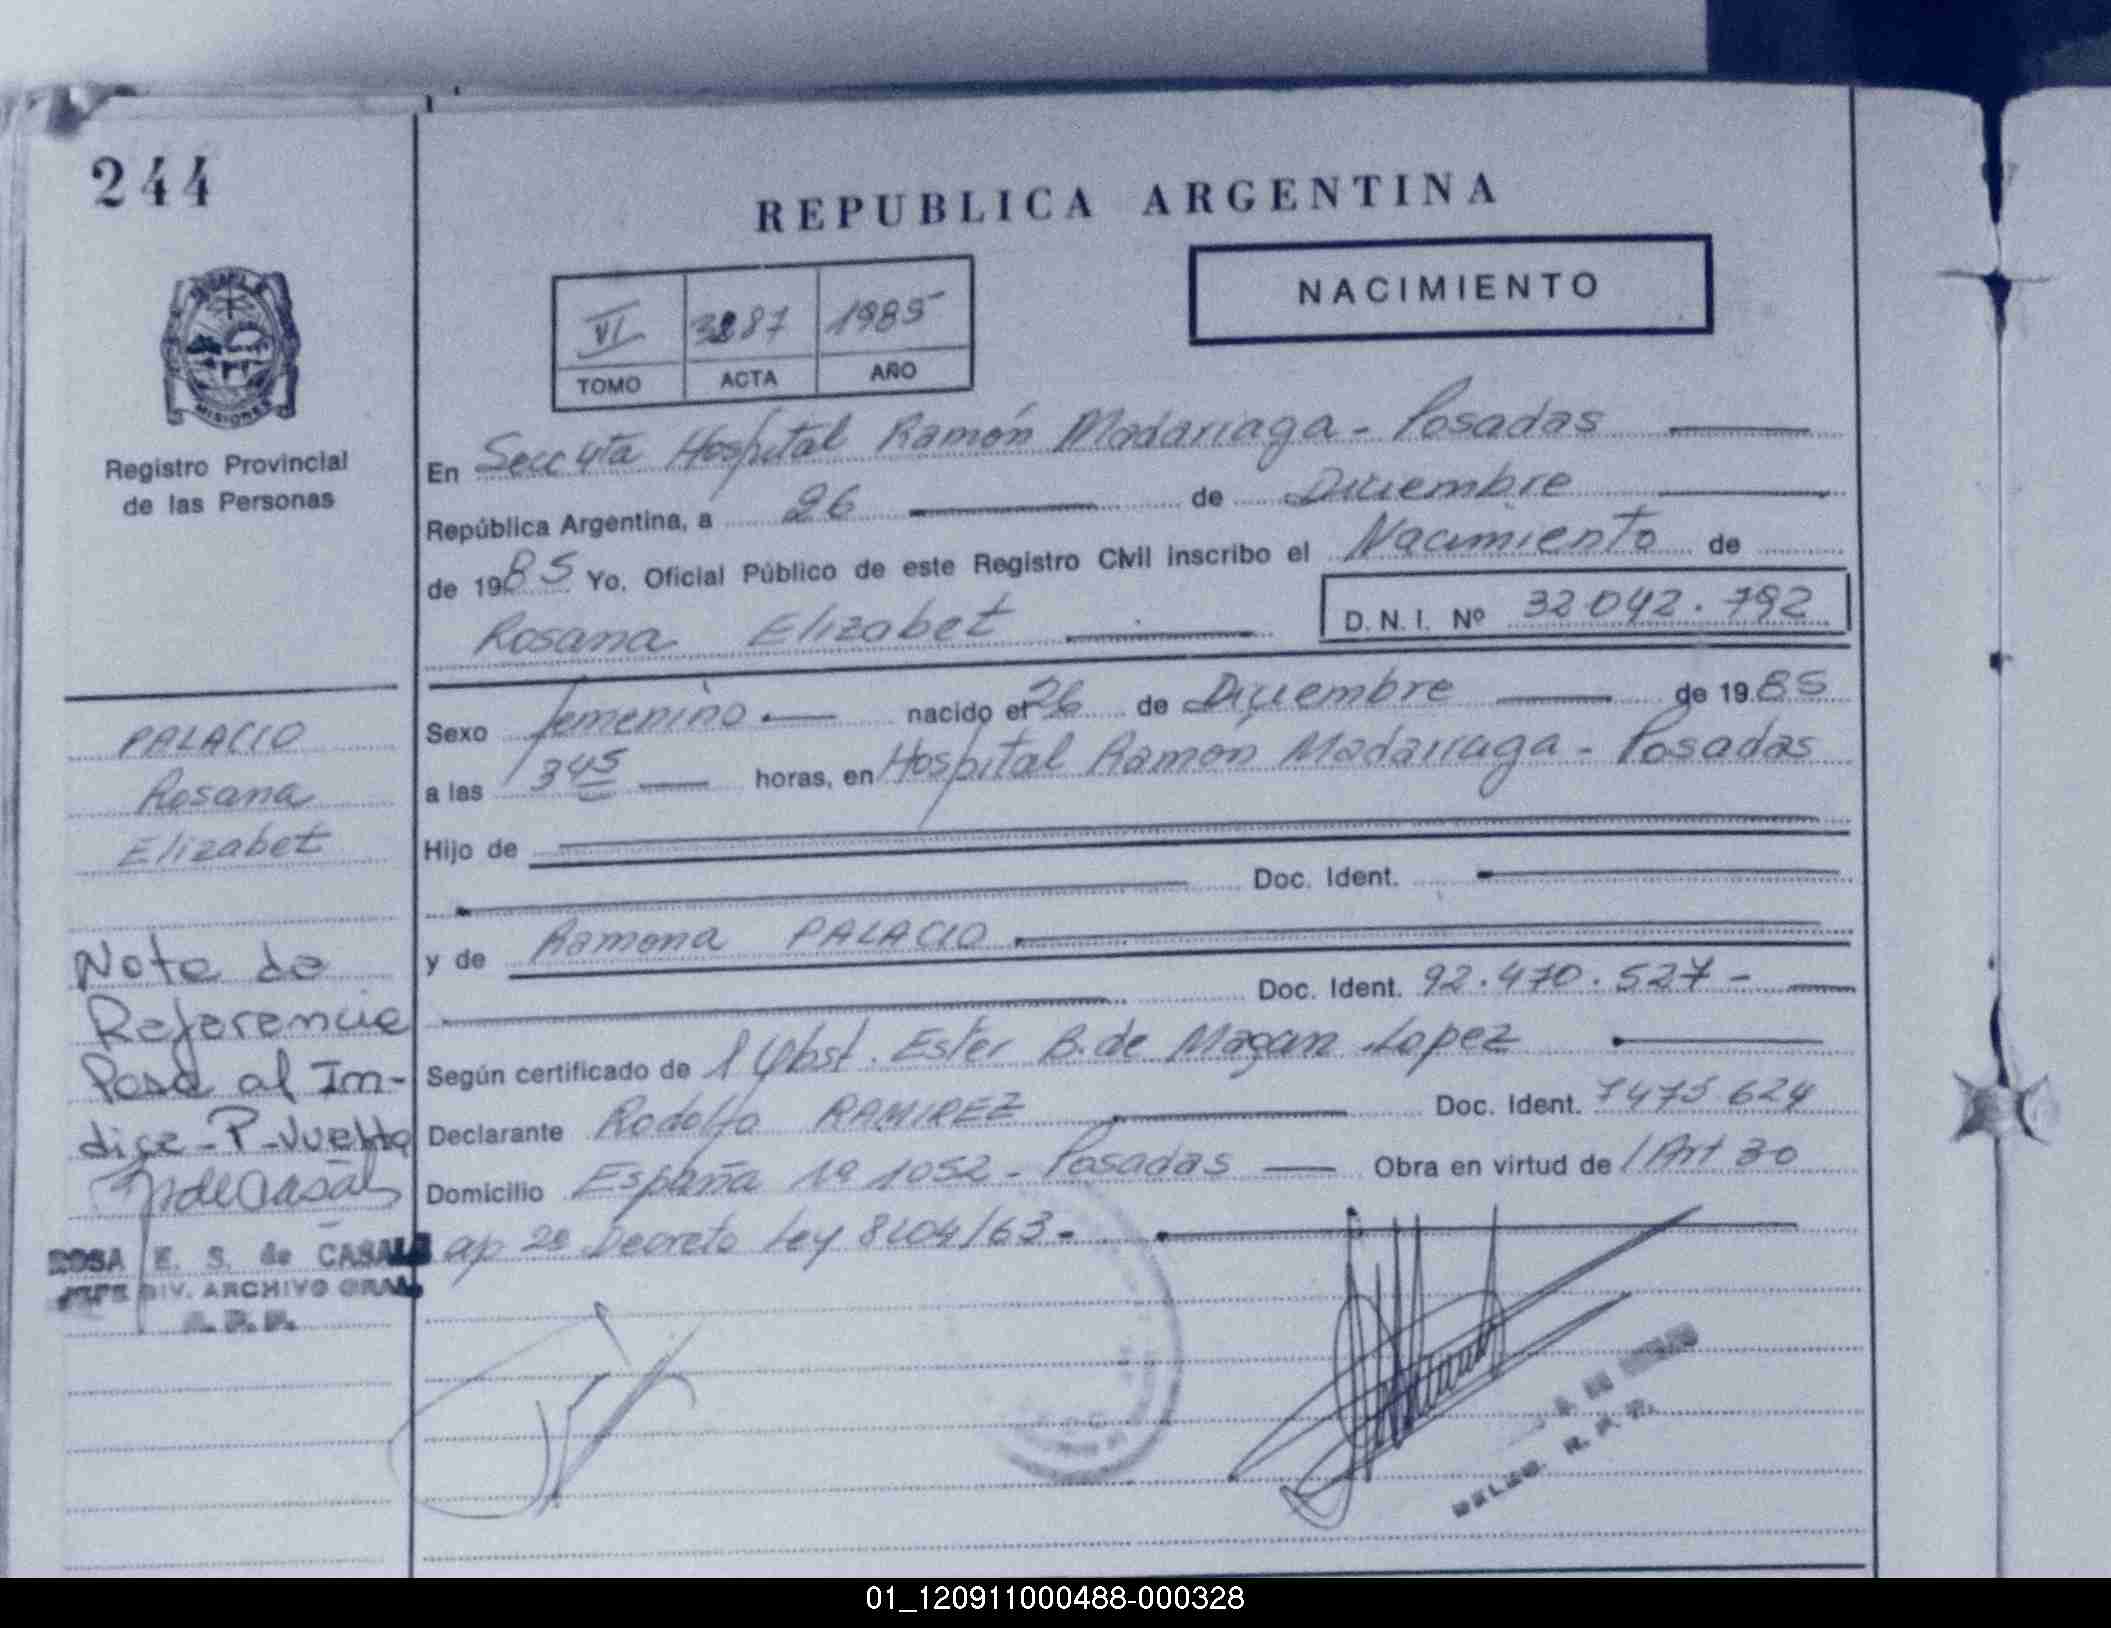 244
REPUBLICA ARGENTINA
NACIMIENTO
VI 3287 1985
TOMO ACTA AÑO
MISIONES
Registro Provincial
de las Personas
En Secc 4ta Hospital Ramón Madariaga - Posadas
República Argentina, a 26 de Diciembre
de 1985 Yo, Oficial Público de este Registro Civil inscribo el Nacimiento de
Rosana Elizabet D. N. I. Nº 32.042.792
PALACIO
Rosana
Elizabet
Sexo femenino nacido el 26 de Diciembre de 1985
a las 1345 horas, en Hospital Ramon Madariaga - Posadas
Hijo de
Doc. Ident.
y de Ramona PALACIO
Doc. Ident. 92.470.527-
Según certificado de Obst. Ester B. de Lopez
Declarante Rodolfo RAMIREZ Doc. Ident. 7475624
Domicilio España 1052 - Posadas Obra en virtud de Art 30
ap 2º Decreto Ley 8204/63-
Nota de
Referencia
Pasa al In-
dice-P-Vuelta
ROSA E. S. de CASALS
JEFE DIV. ARCHIVO GRAL
R. P. P.
01_120911000488-000328